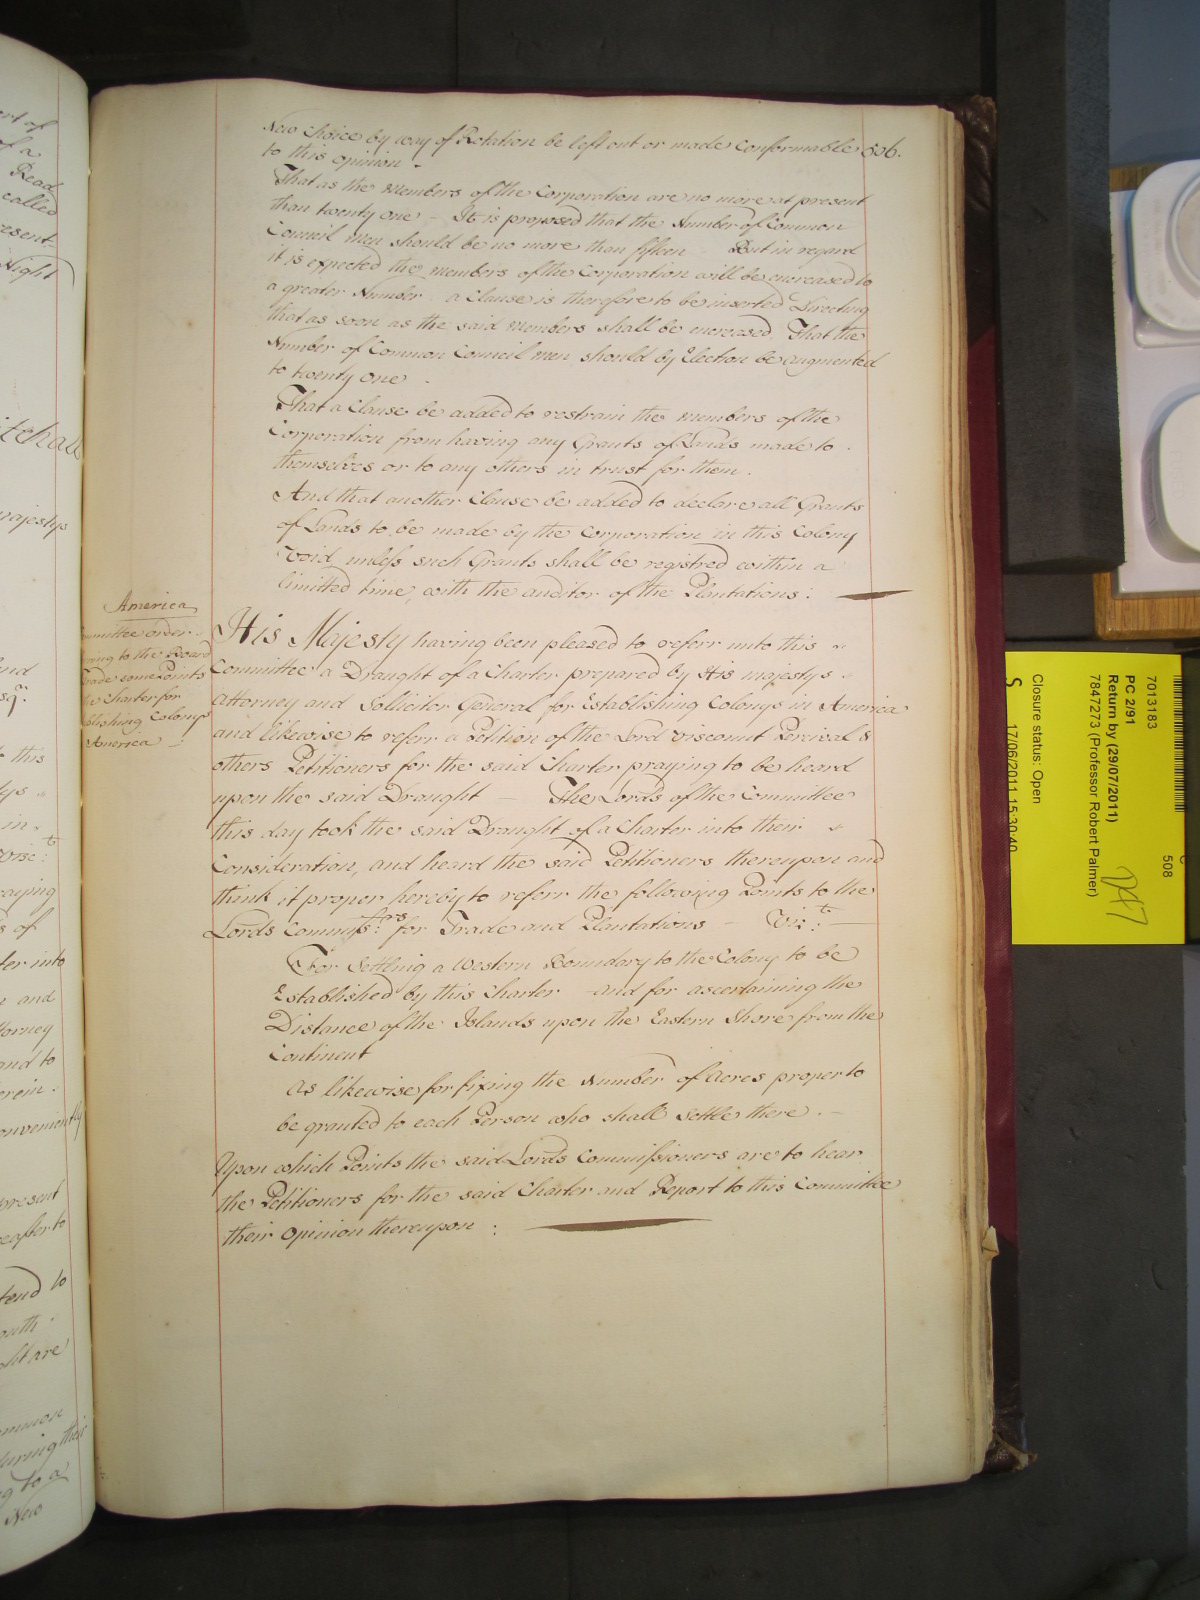 New Choice by way of Rotation be left out or made Conformable 506.
to this opinion -
That as the Members of the Corporation are no more at present
than twenty one - It is proposed that the Number of Common
Council Men should be no more than fifteen But in regard
it is expected the members of the Corporation will be encreased to
a greater Number - a Clause is therefore to be inserted Directing
that as soon as the said Members shall be encreased, That the
Number of Common Council men should by Election be augmented
to twenty one .
That a Clause be added to restrain the Members of the
Corporation from having any Grants of Lands made to
themselves or to any others in trust for them .
And that another Clause be added to declare all Grants
of Lands to be made by the Corporation in this Colony
Void unless such Grants shall be registred within a
limitted time, with the auditor of the Plantations :
America
Committee order
to the Board
Trade some Points
the Charter for
Establishing Colonys
America
His Majesty having been pleased to referr unto this
Committee a Draught of a Charter prepared by His majestys
Attorney and Sollicitor General for Establishing Colonys in America
and likewise to referr a Petition of the Lord Viscount Percival &
others Petitioners for the said Charter praying to be heard
upon the said Draught The Lords of the Committee
this day took the said Draught of a Charter into their
Consideration, and heard the said Petitioners thereupon and
think it proper hereby to referr the following Points to the
Lords Commiss:rs for Trade and Plantations - Viz:t
For Settling a Western Boundary to the Colony to be
Established by this Charter and for ascertaining the
Distance of the Islands upon the Eastern Shore from the
Continent
As likewise for fixing the Number of Acres proper to
be granted to each Person who shall settle there . -
Upon which Points the said Lords Commissioners are to hear
the Petitioners for the said Charter and Report to this Committee
their Opinion thereupon :
7013183
PC 2/91
Return by (29/07/2011)
7847273 (Professor Robert Palmer)
Closure status: Open
S 17/06/2011 15:30:40
508